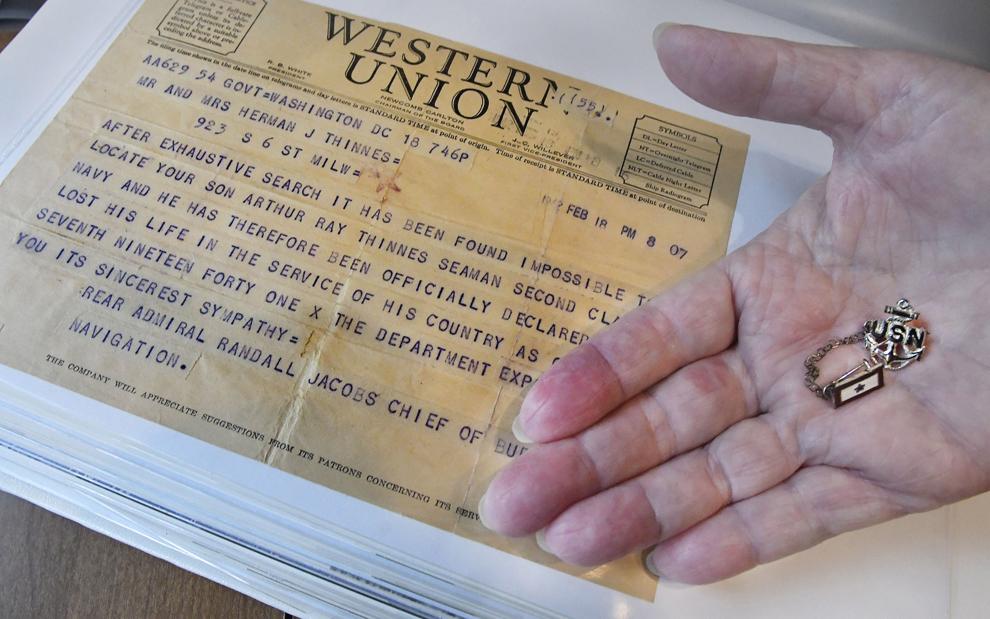 WESTERN
UNION
(155)
R. B. WHITE
PRESIDENT
NEWCOMB CARLTON
CHAIRMAN OF THE BOARD
J. C. WILLEVER
FIRST VICE-PRESIDENT
SYMBOLS
DL=Day Letter
NT=Overnight Telegram
LC=Deferred Cable
NLT=Cable Night Letter
Ship Radiogram
The filing time shown in the date line on telegrams and day letters is STANDARD TIME at point of origin. Time of receipt is STANDARD TIME at point of destination
AA629 54 GOVT=WASHINGTON DC 18 746P
MR AND MRS HERMAN J THINNES=
923 S 6 ST MILW=
FEB 18 PM 8 07
AFTER EXHAUSTIVE SEARCH IT HAS BEEN FOUND IMPOSSIBLE
LOCATE YOUR SON ARTHUR RAY THINNES SEAMAN SECOND CLA
NAVY AND HE HAS THEREFORE BEEN OFFICIALLY DECLARED
LOST HIS LIFE IN THE SERVICE OF HIS COUNTRY AS
SEVENTH NINETEEN FORTY ONE X THE DEPARTMENT EXP
YOU ITS SINCEREST SYMPATHY=
REAR ADMIRAL RANDALL JACOBS CHIEF OF BU
NAVIGATION.
THE COMPANY WILL APPRECIATE SUGGESTIONS FROM ITS PATRONS CONCERNING ITS SERV
USN